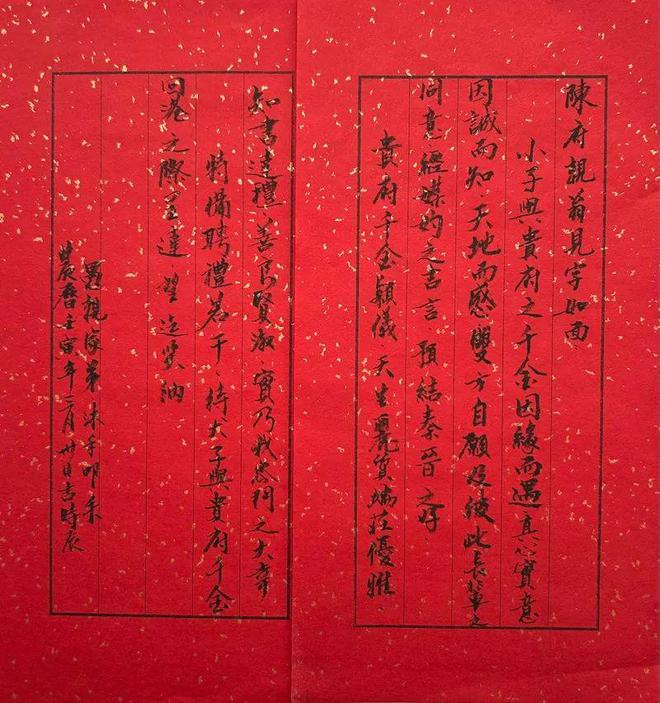 陳府親翁見字如面：
小子與貴府之千金因緣而遇真心實意
因誠而知天地而感雙方自願及彼此長輩之
同意經媒妁之吉言預結秦晉之好
貴府千金穎儀天生麗質端莊優雅
知書達禮善良賢淑實乃我門之大幸
特備聘禮若干待犬子與貴府千金
回港之際呈達望造笑納
親家弟沐手叩朱
農曆壬寅年二月廿日吉時辰